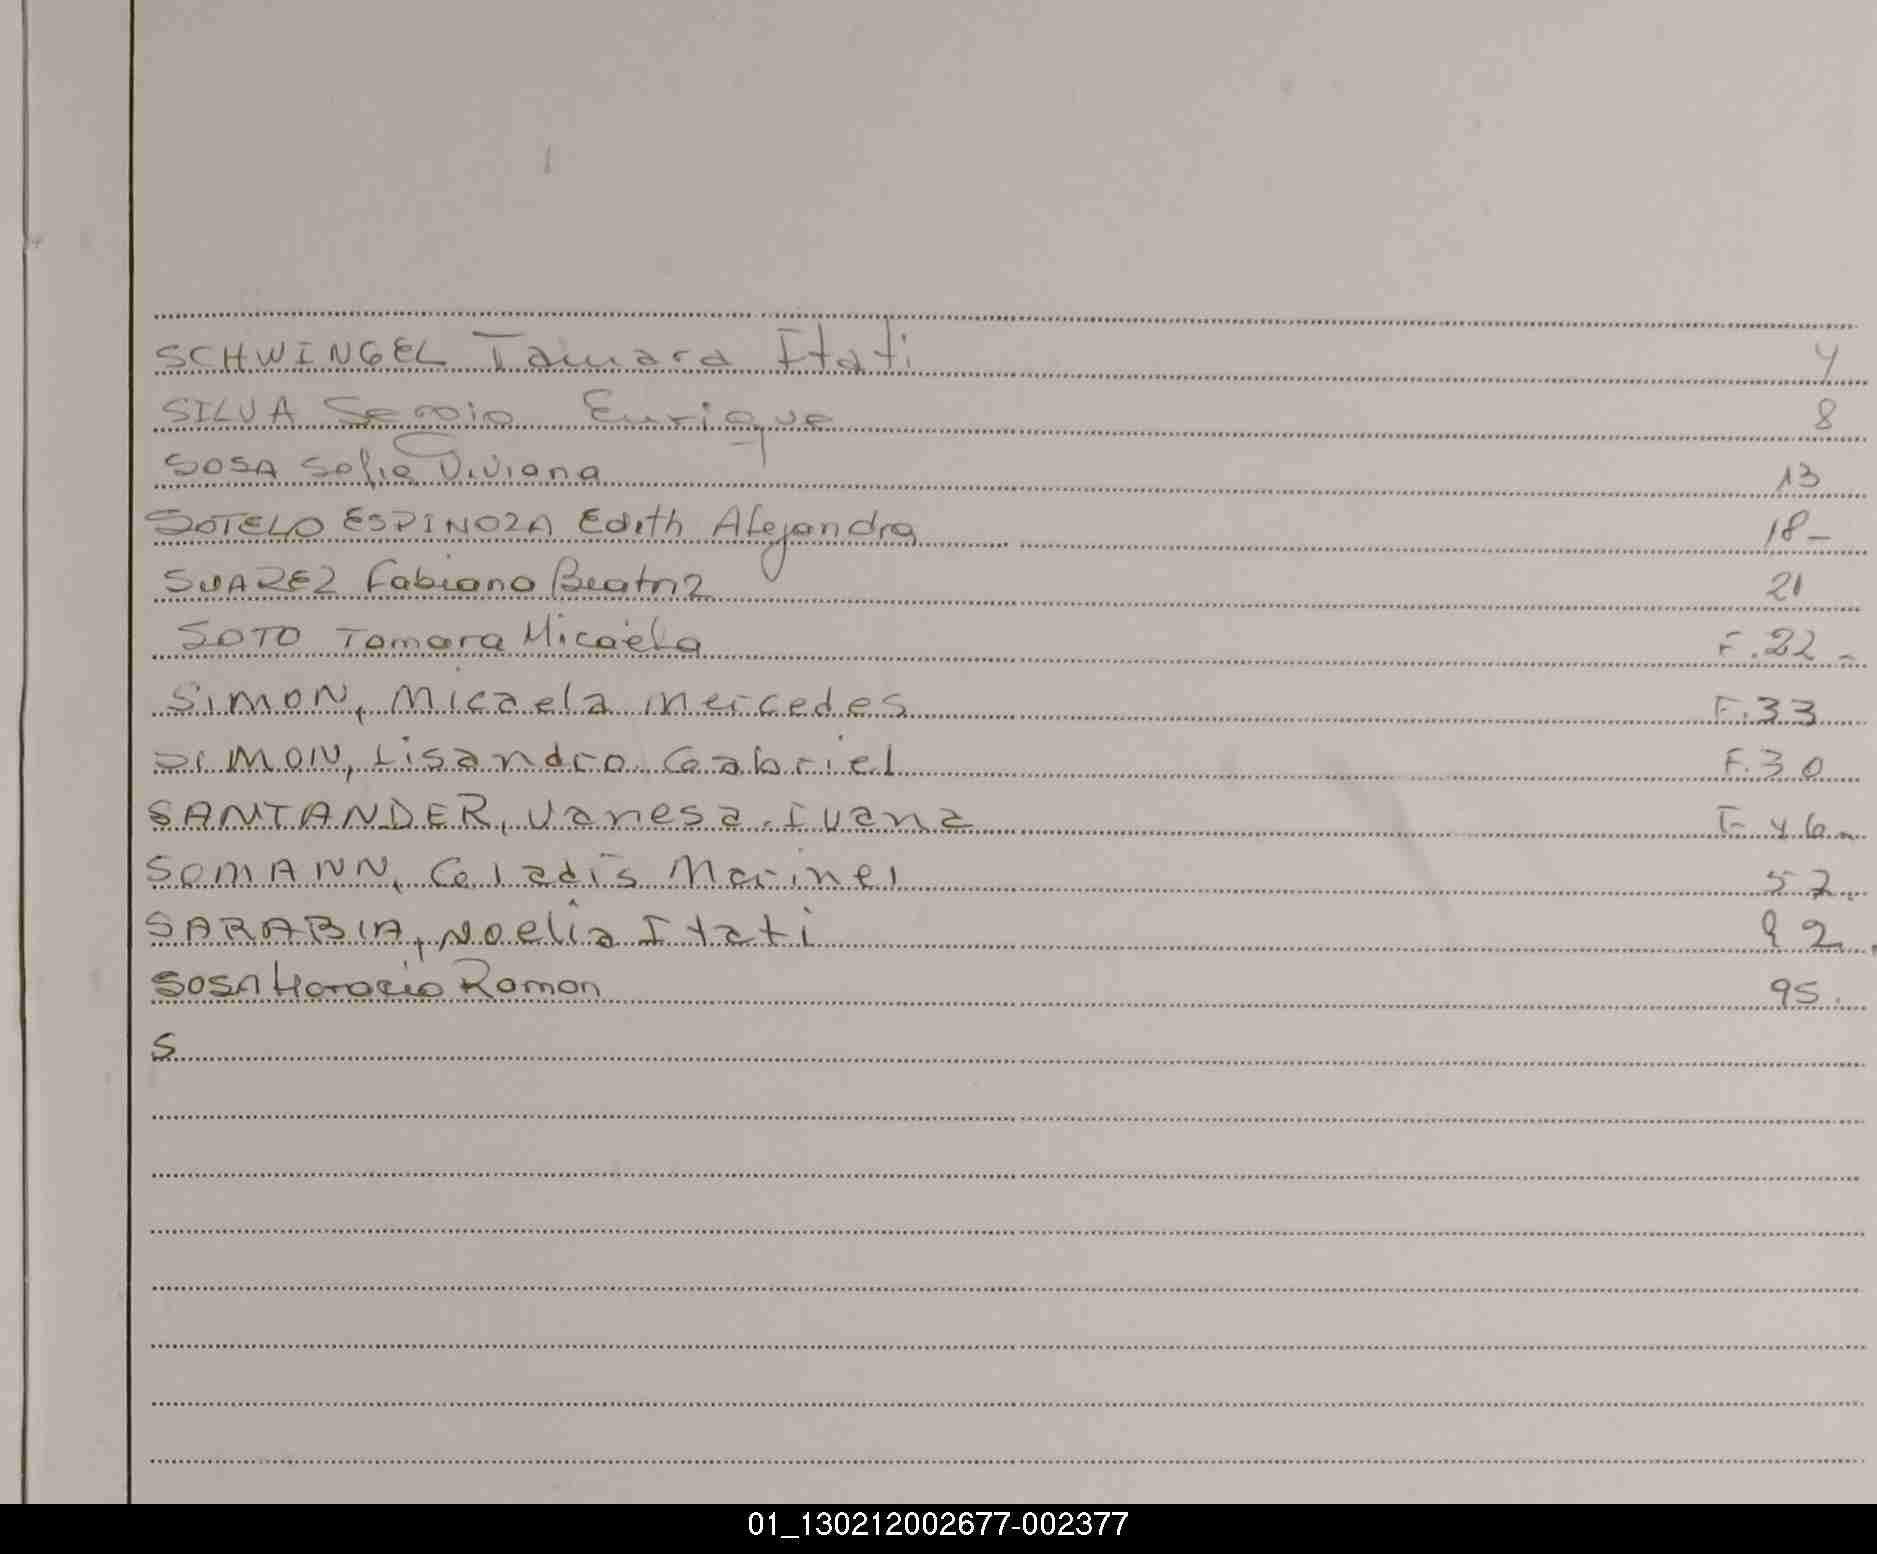 SCHWINGEL Tamara Itati 4
SILVA Sergio Enrique 8
SOSA Sofia Viviana 13
SOTELO ESPINOZA Edith Alejandra 18-
SUAREZ Fabiana Beatriz 21
SOTO Tamara Micaela F.22-
SIMON, Micaela Mercedes F.33
SIMON, Lisandro Gabriel F.30
SANTANDER, Vanesa Ivana F 46-
SOMANN, Gladis Marinel 57.
SARABIA, Noelia Itati 92.
SOSA Horacio Ramon 95.
S
01_130212002677-002377